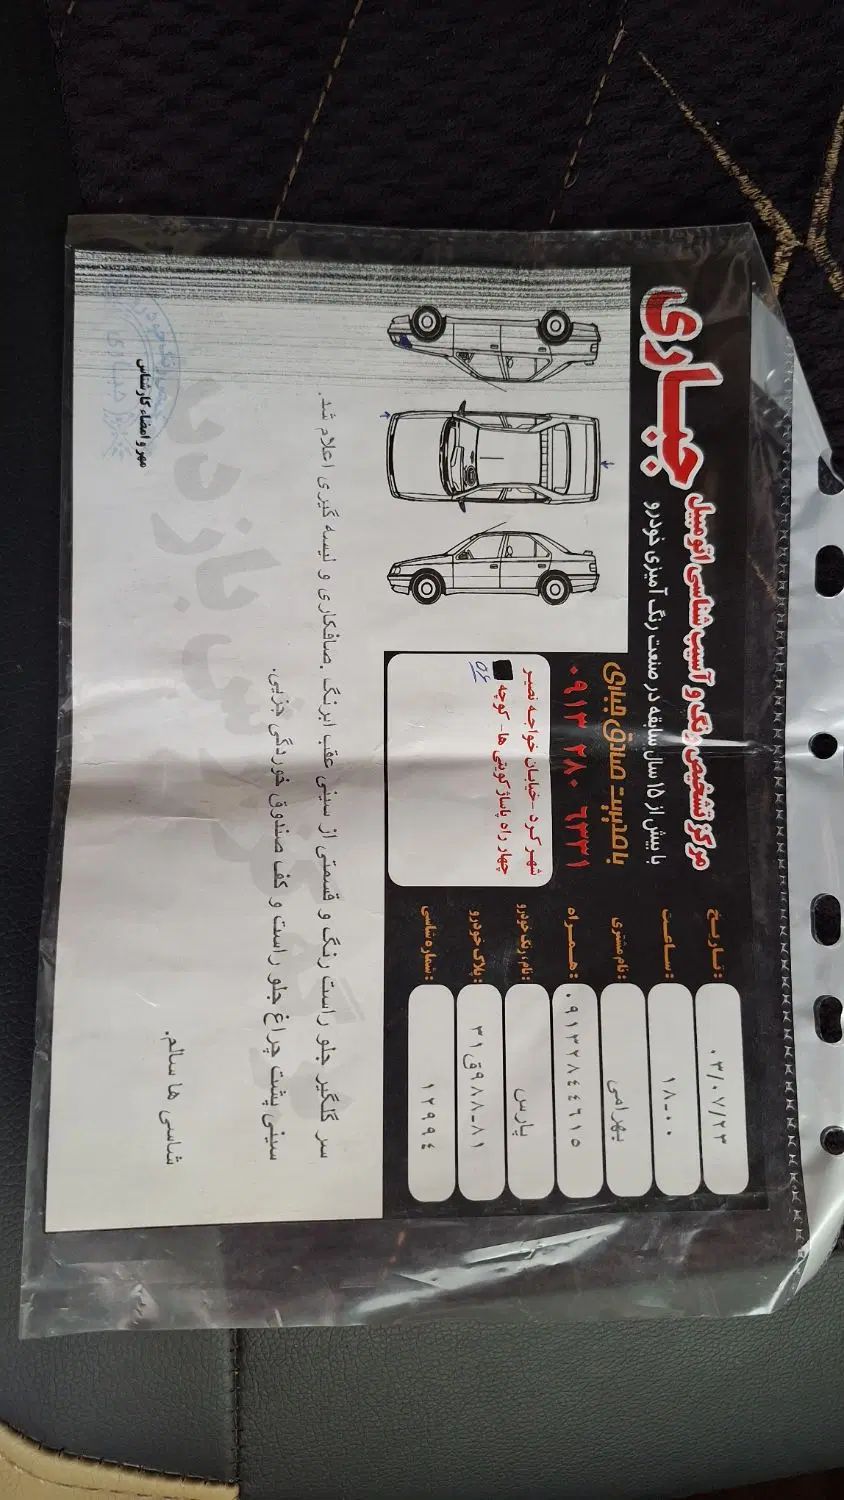 جباری
مرکز تشخیص رنگ و آسیب شناسی اتومبیل
با بیش از ۱۵ سال سابقه در صنعت رنگ آمیزی خودرو
با مدیریت صادق جباری
۰۹۱۳ ۲۸۰ ۶۳۳۱
شهر کرد -خیابان خواجه نصیر
چهار راه پاساژ کویتی ها- کوچه
۵۶
تاریخ: ۰۳/۰۷/۲۳
ساعت: ۱۸-۰۰
نام مشتری: بهرامی
همراه: ۰۹۱۳۲۸۴۴۶۱۵
نام، رنگ خودرو: پارس
پلاک خودرو: ۳۱ق۹۸۸-۸۱
شماره شاسی: ۱۲۹۹۴
سر گلگیر جلو راست رنگ و قسمتی از سینی عقب ابرنگ .صافکاری و لیسه گیری اعلام شد.
سینی پشت چراغ جلو راست و کف صندوق خوردگی جزیی.
شاسی ها سالم.
مهر و امضاء کارشناس